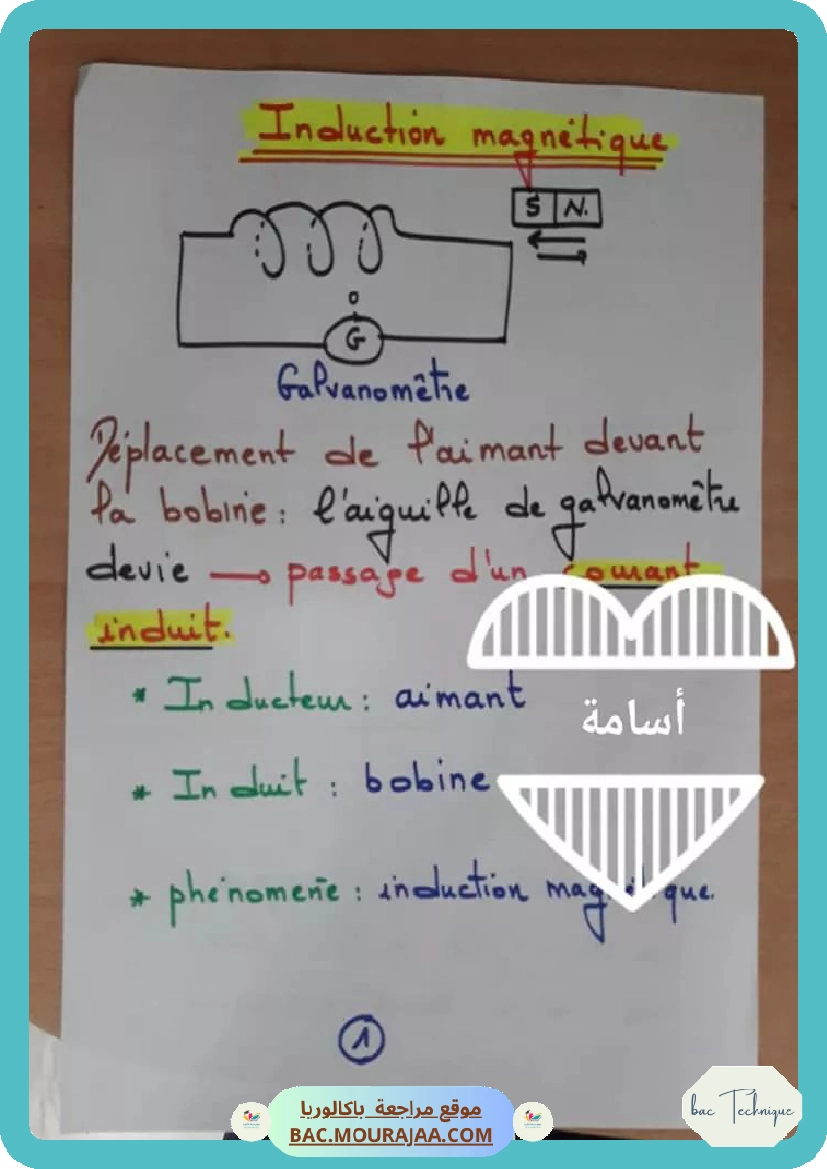 Induction magnétique
S N.
0
G
Galvanomètre
Déplacement de l'aimant devant
la bobine : l'aiguille de galvanomètre
devie → passage d'un courant
induit.
* Inducteur : aimant
أسامة
* Induit : bobine
* phénomène : induction magnétique.
1
موقع مراجعة باكالوريا
BAC.MOURAJAA.COM
bac Technique